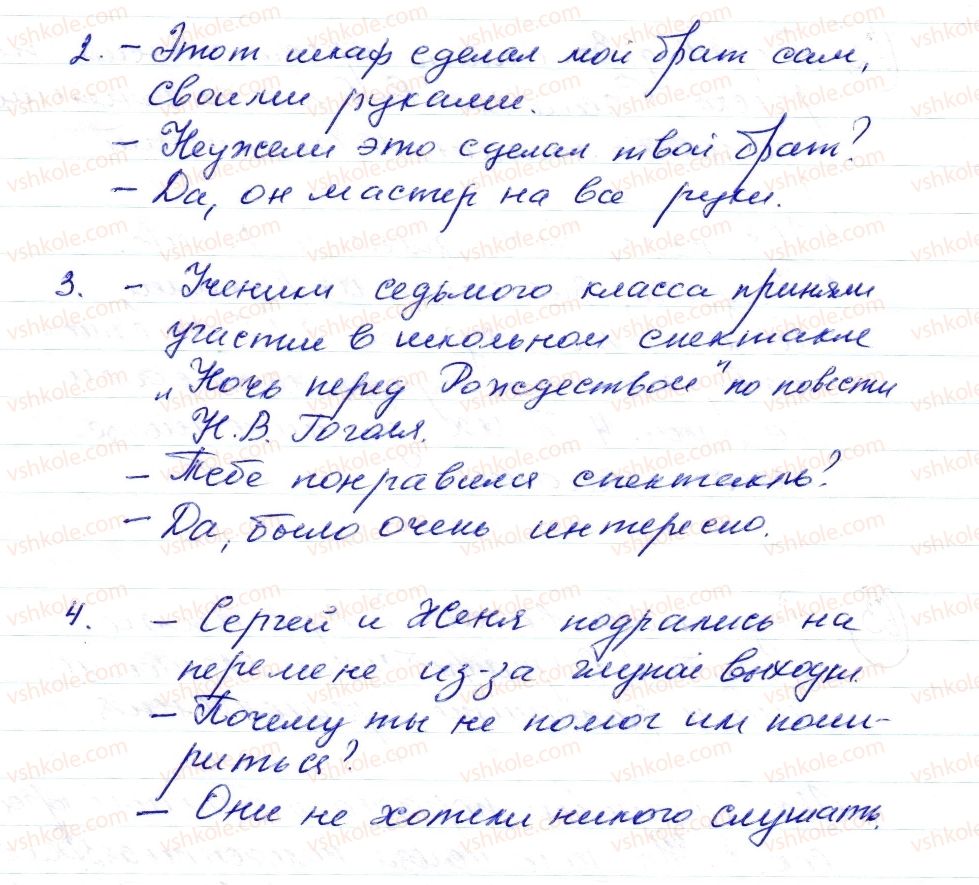 2. – Этот шкаф сделал мой брат сам,
своими руками.
– Неужели это сделал твой брат?
– Да, он мастер на все руки.
3. – Ученики седьмого класса приняли
участие в школьном спектакле
„Ночь перед Рождеством" по повести
Н.В. Гоголя.
– Тебе понравился спектакль?
– Да, было очень интересно.
4. – Сергей и Женя подрались на
перемене из-за глупой выходки.
– Почему ты не помог им поми-
риться?
– Они не хотели никого слушать.